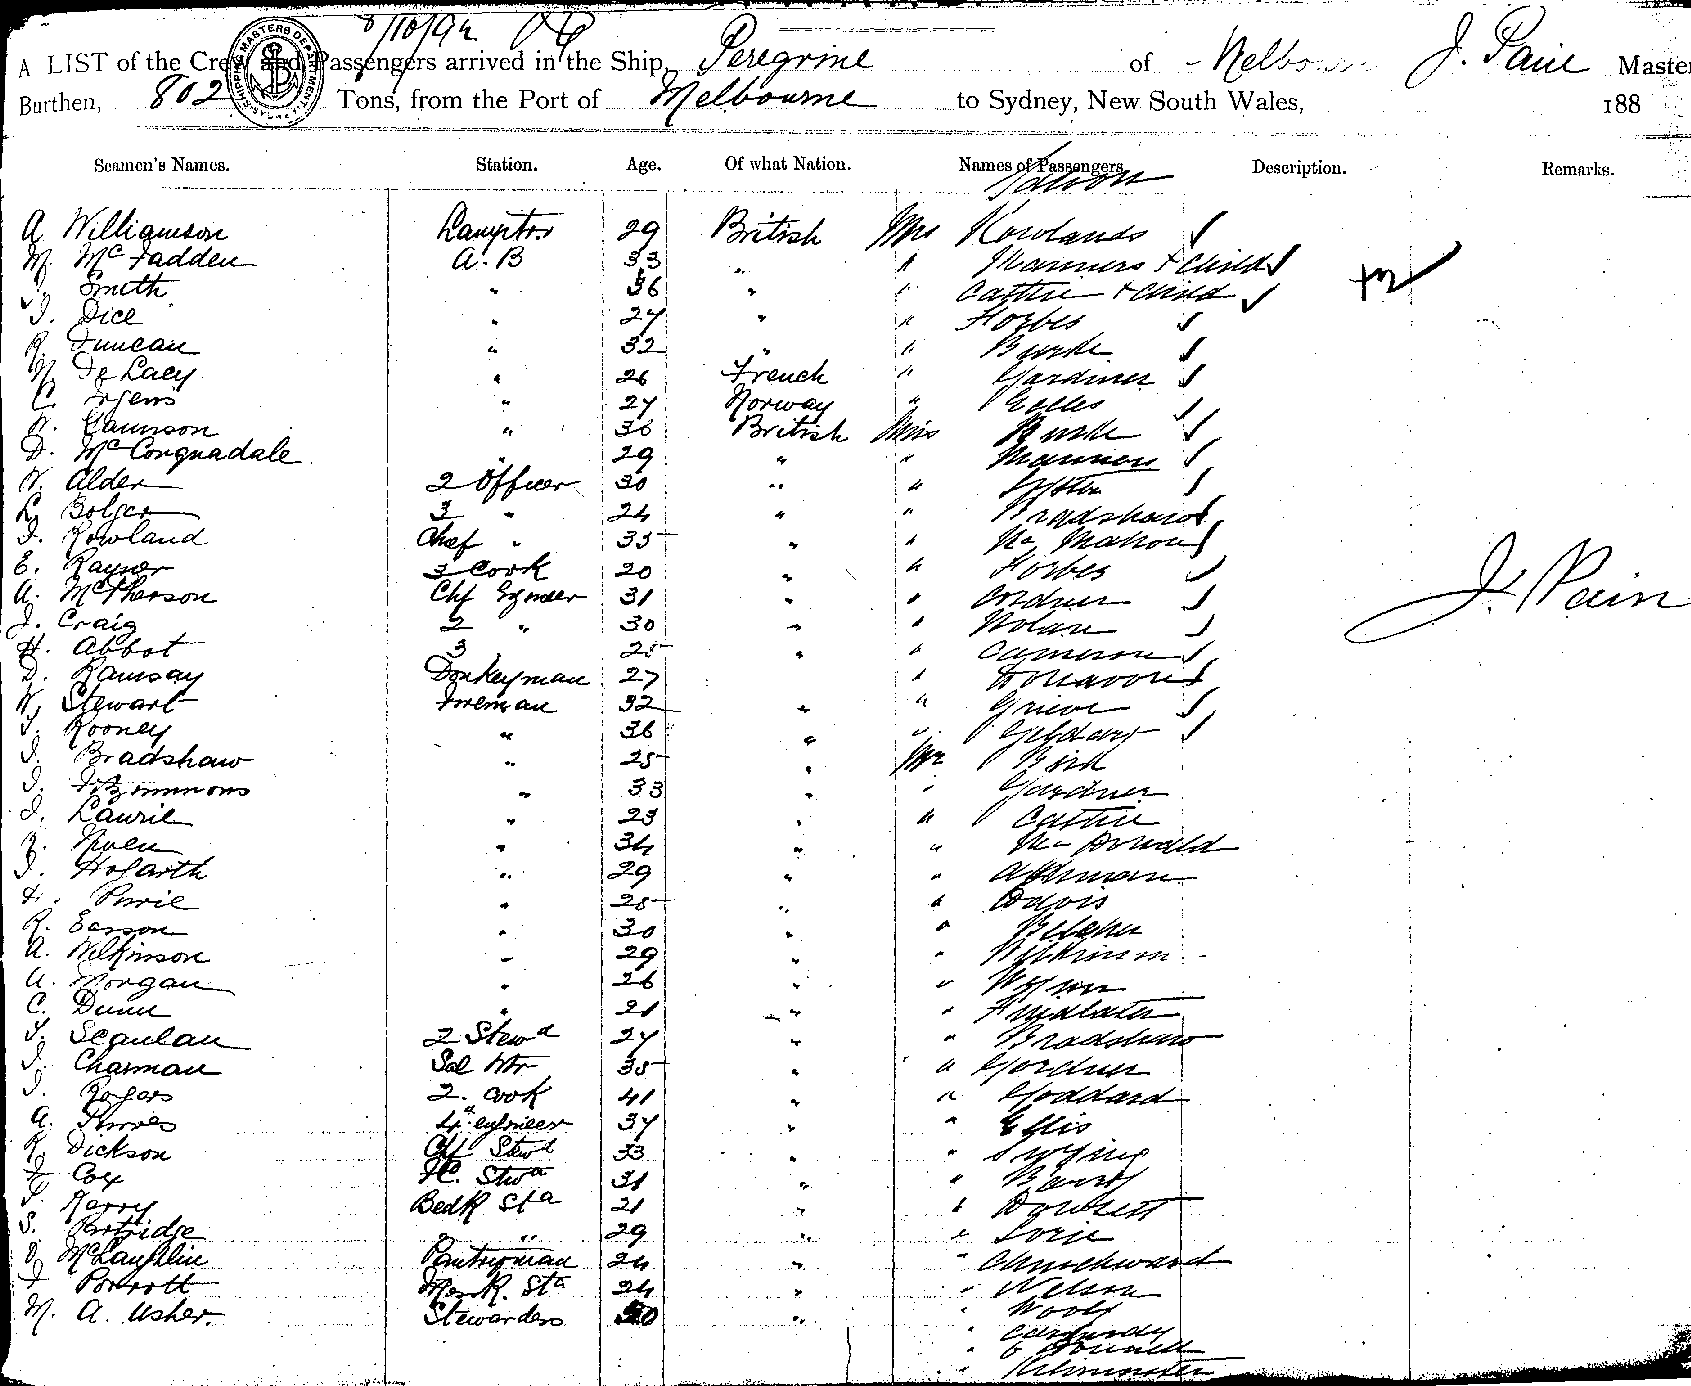 8/10/92
A LIST of the Crew and Passengers arrived in the Ship, Peregrine of Melbourne J. Pain Master
Burthen, 802 Tons, from the Port of Melbourne to Sydney, New South Wales, 188
Seamen's Names. Station. Age. Of what Nation. Names of Passengers Description. Remarks.
Saloon
A Williamson Lamptrs 29 British Mrs Rowlands
M. McFadden A.B 33 " " Manners + child
Smith " 36 " " Cattie + child
J. Dice " 27 " " Forbes
R Duncan " 32 " " Burke
De Lacy " 26 French " Gardiner
C. " 27 Norway "
" 36 British Miss Burke
D. McCorquadale " 29 " "
W. Alder 2 Officer 30 " "
L. Bolger 3 " 24 " " Bradshaw
J. Rowland Chef " 35 " " Mc Mahon
E. Rayner 3 Cook 20 " " Forbes
A. McPherson Chf Egneer 31 " "
J. Craig 2 " 30 " " Nolan
H. Abbot 3 25 " " Cameron
D. Ramsay Donkeyman 27 " Donavon
W. Stewart Foreman 32 " " Grieve
T. Rooney " 36 " "
J. Bradshaw " 25 " Mr Bird
J. Fitzsimmons " 33 " " Gardner
J. Laurie " 23 " " Cattie
" 34 " " Mc Donald
J. Hogarth " 29 " "
" 25 " " Davis
R. Easson " 30 " " Belcher
A. Wilkinson " 29 " " Wilkinson
A. Morgan " 26 " "
C. Dunn " 21 " " Findlater
T. Scanlan 2 Stewd 27 " " Bradshaw
J. Charman Sal Wtr 35 " " Gordner
J. Rogers 2. Cook 41 " " Goddard
A. Purves 4th engineer 37 " " Ellis
R. Dickson Chf Stewd 33 " "
J Cox F.C. Stwd 31 " " Barry
T. Kerry BedR Std 21 " " Dowsett
S. Partridge " " 29 " "
McLaughlin Pantryman 24 " " Churchward
J Porrott MessR. Std 24 " " Nelson
M. A. Usher. Stewardess " " Woolf
"
" O'Donnell
"
J. Pain